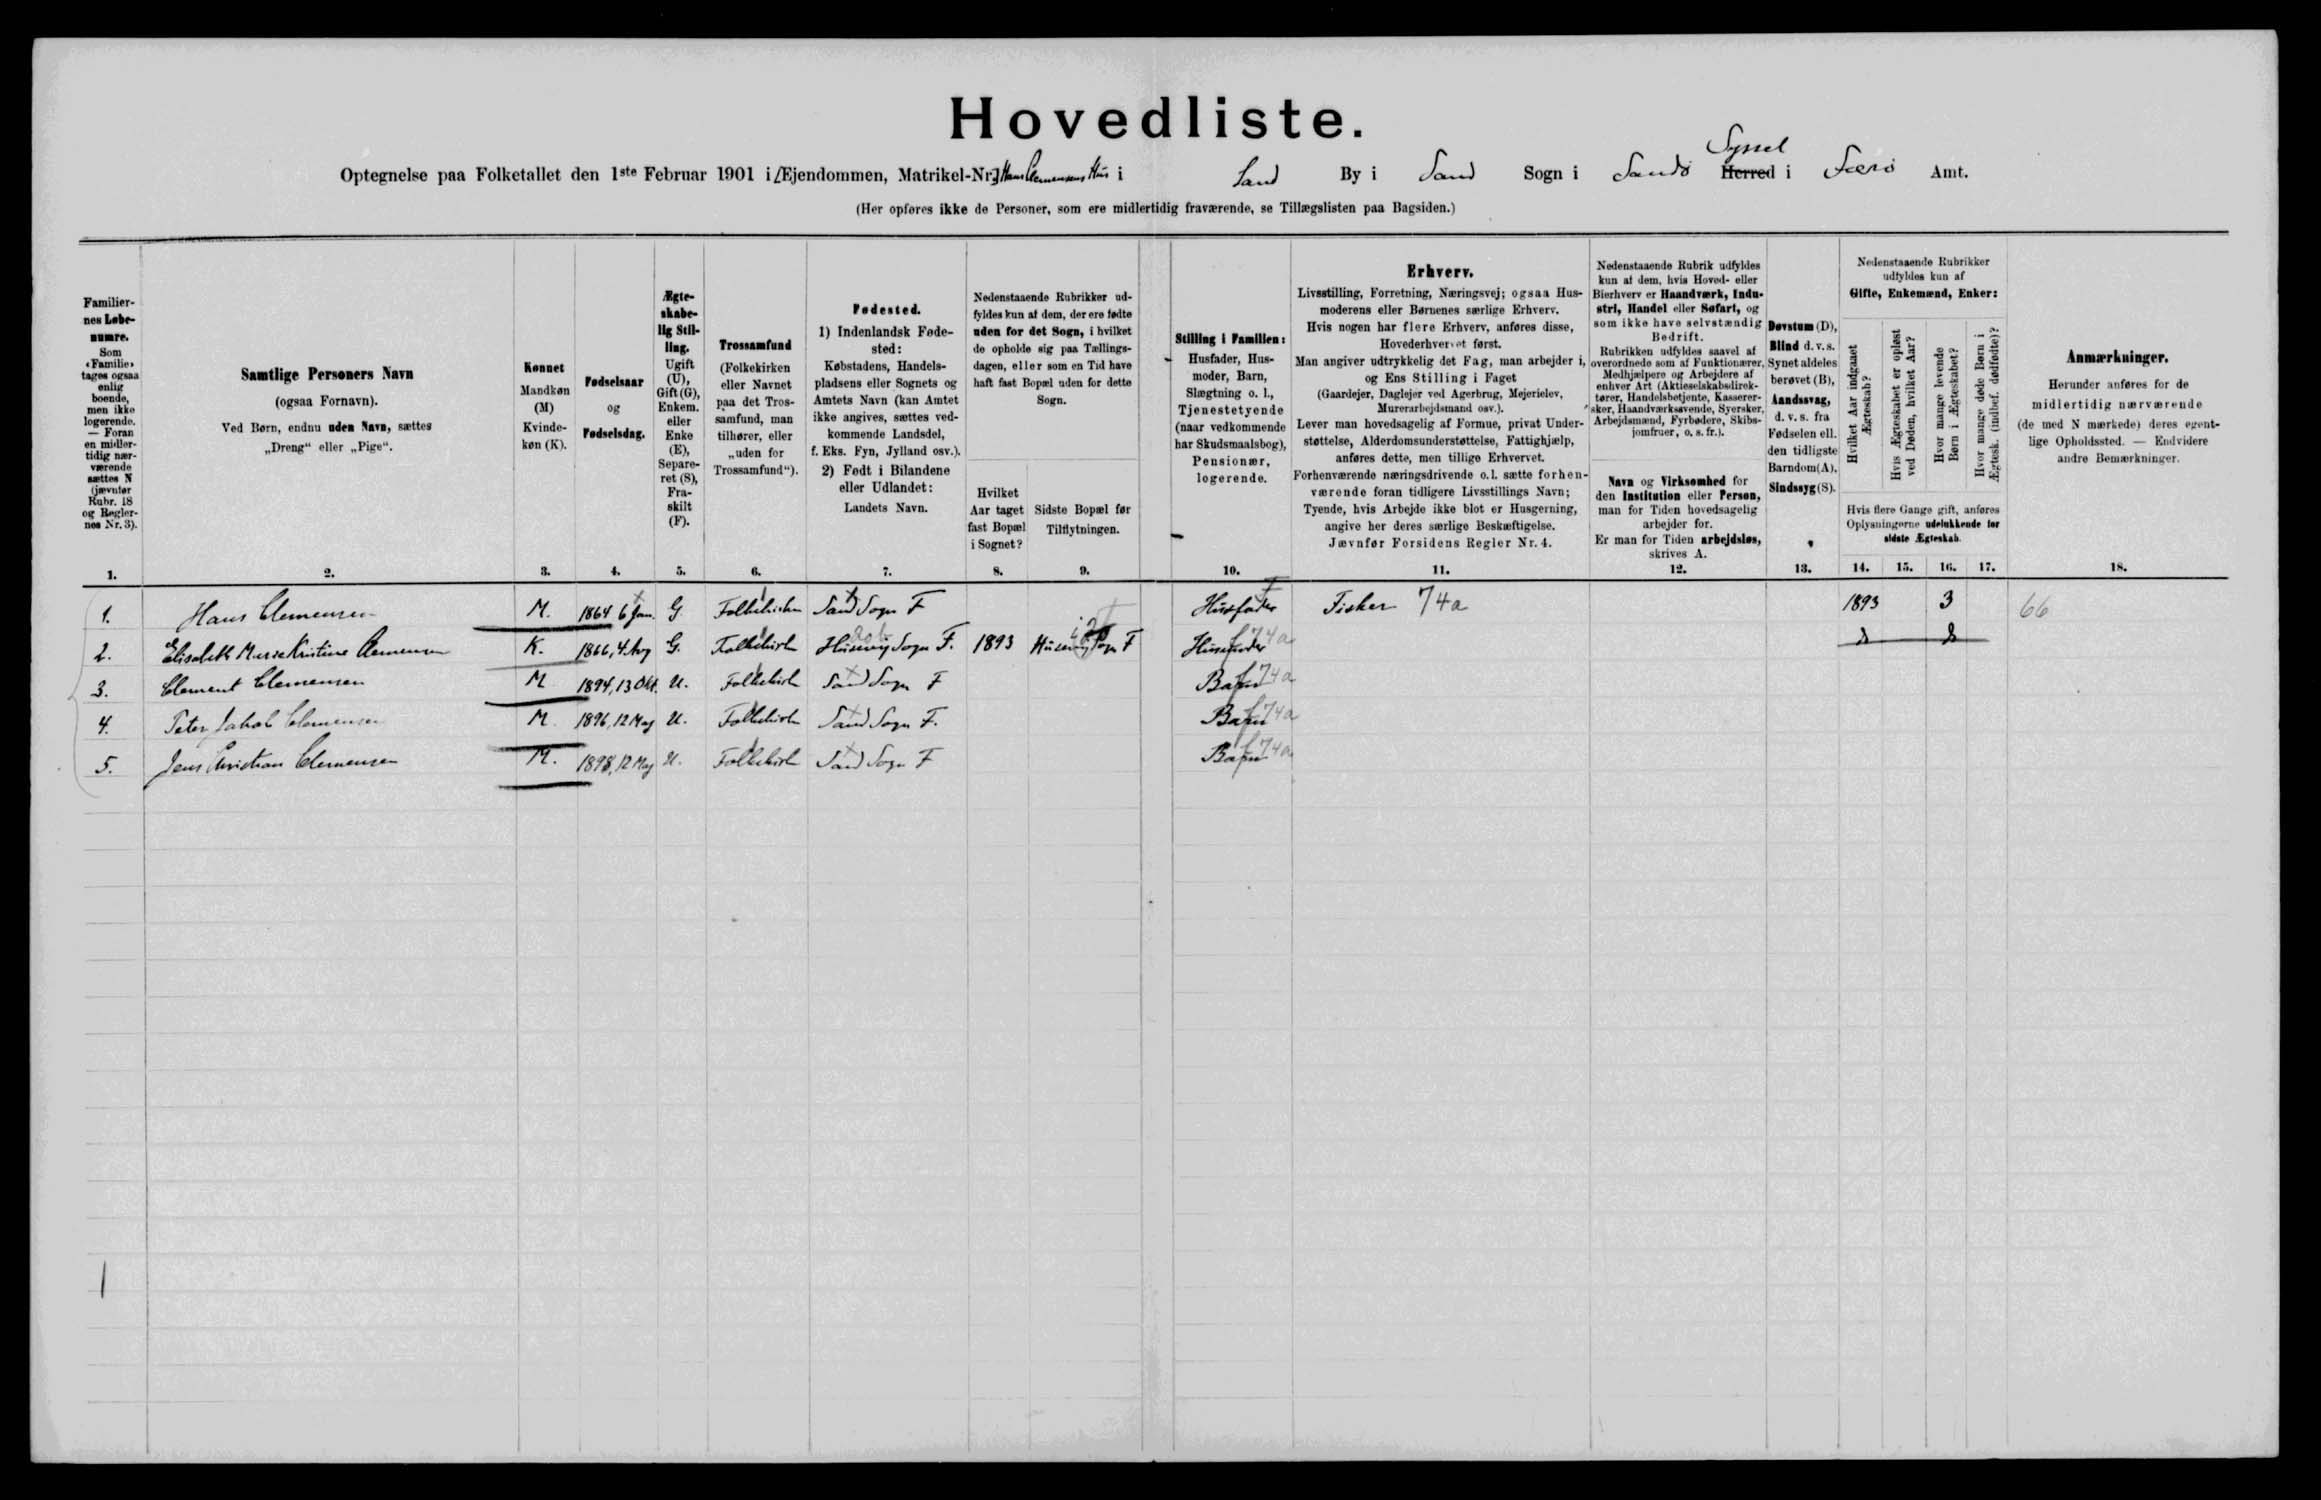 Hovedliste.
Syssel
Optegnelse paa Folketallet den 1ste Februar 1901 i [Ejendommen, Matrikel-Nr.] Hans Clemensens Hus i Sand By i Sand Sogn i Sandø Herred i Færø Amt.
(Her opføres ikke de Personer, som ere midlertidig fraværende, se Tillægslisten paa Bagsiden.)
Familier-
nes Løbe-
numre.
Som
«Familie»
tages ogsaa
enlig
boende,
men ikke
logerende.
— Foran
en midler-
tidig nær-
værende
sættes N
(jævnfør
Rubr. 18
og Regler-
nes Nr. 3).
1.
Samtlige Personers Navn
(ogsaa Fornavn).
Ved Børn, endnu uden Navn, sættes
„Dreng“ eller „Pige“.
2.
Kønnet
Mandkøn
(M)
Kvinde-
køn (K).
3.
Fødselsaar
og
Fødselsdag.
4.
Ægte-
skabe-
lig Stil-
ling.
Ugift
(U),
Gift (G),
Enkem.
eller
Enke
(E),
Separe-
ret (S),
Fra-
skilt
(F).
5.
Trossamfund
(Folkekirken
eller Navnet
paa det Tros-
samfund, man
tilhører, eller
„uden for
Trossamfund“).
6.
Fødested.
1) Indenlandsk Føde-
sted:
Købstadens, Handels-
pladsens eller Sognets og
Amtets Navn (kan Amtet
ikke angives, sættes ved-
kommende Landsdel,
f. Eks. Fyn, Jylland osv.).
2) Født i Bilandene
eller Udlandet:
Landets Navn.
7.
Nedenstaaende Rubrikker ud-
fyldes kun af dem, der ere fødte
uden for det Sogn, i hvilket
de opholde sig paa Tællings-
dagen, eller som en Tid have
haft fast Bopæl uden for dette
Sogn.
Hvilket
Aar taget
fast Bopæl
i Sognet?
8.
Sidste Bopæl før
Tilflytningen.
9.
Stilling i Familien:
Husfader, Hus-
moder, Barn,
Slægtning o. l.,
Tjenestetyende
(naar vedkommende
har Skudsmaalsbog),
Pensionær,
logerende.
10.
Erhverv.
Livsstilling, Forretning, Næringsvej; ogsaa Hus-
moderens eller Børnenes særlige Erhverv.
Hvis nogen har flere Erhverv, anføres disse,
Hovederhvervet først.
Man angiver udtrykkelig det Fag, man arbejder i,
og Ens Stilling i Faget
(Gaardejer, Daglejer ved Agerbrug, Mejerielev,
Murerarbejdsmand osv.).
Lever man hovedsagelig af Formue, privat Under-
støttelse, Alderdomsunderstøttelse, Fattighjælp,
anføres dette, men tillige Erhvervet.
Forhenværende næringsdrivende o. l. sætte forhen-
værende foran tidligere Livsstillings Navn;
Tyende, hvis Arbejde ikke blot er Husgerning,
angive her deres særlige Beskæftigelse.
Jævnfør Forsidens Regler Nr. 4.
11.
Nedenstaaende Rubrik udfyldes
kun af dem, hvis Hoved- eller
Bierhverv er Haandværk, Indu-
stri, Handel eller Søfart, og
som ikke have selvstændig
Bedrift.
Rubrikken udfyldes saavel af
overordnede som af Funktionærer,
Medhjælpere og Arbejdere af
enhver Art (Aktieselskabsdirek-
tører, Handelsbetjente, Kasserer-
sker, Haandværksøvende, Syersker,
Arbejdsmænd, Fyrbødere, Skibs-
jomfruer, o. s. fr.).
Navn og Virksomhed for
den Institution eller Person,
man for Tiden hovedsagelig
arbejder for.
Er man for Tiden arbejdsløs,
skrives A.
12.
Døvstum (D),
Blind d. v. s.
Synet aldeles
berøvet (B),
Aandssvag,
d. v. s. fra
Fødselen ell.
den tidligste
Barndom (A),
Sindssyg (S).
13.
Nedenstaaende Rubrikker
udfyldes kun af
Gifte, Enkemænd, Enker:
Hvilket Aar indgaaet
Ægteskab?
Hvis Ægteskabet er opløst
ved Døden, hvilket Aar?
Hvor mange levende
Børn i Ægteskabet?
Hvor mange døde Børn i
Ægtesk. (indbef. dødfødte)?
Hvis flere Gange gift, anføres
Oplysningerne udelukkende for
sidste Ægteskab.
14. 15. 16. 17.
Anmærkninger.
Herunder anføres for de
midlertidig nærværende
(de med N mærkede) deres egent-
lige Opholdssted. — Endvidere
andre Bemærkninger.
18.
1. Hans Clemensen M. 1864 6 Jan. G. Folkekirken Sand Sogn F Husfader Fisker 74a 1893 3 66
2. Elisabeth Marie Kristine Clemensen K. 1866, 4. Aug G. Folkekirk Husevig Sogn F. 1893 Husevig Sogn F Husmoder 74a
3. Clement Clemensen M 1894, 13 Okt. U. Folkekirk Sand Sogn F Barn 74a
4. Peter Jakob Clemensen M. 1896, 12 Maj U. Folkekirk Sand Sogn F. Barn 74a
5. Jens Christian Clemensen M. 1898, 12 Maj U. Folkekirk Sand Sogn F Barn 74a